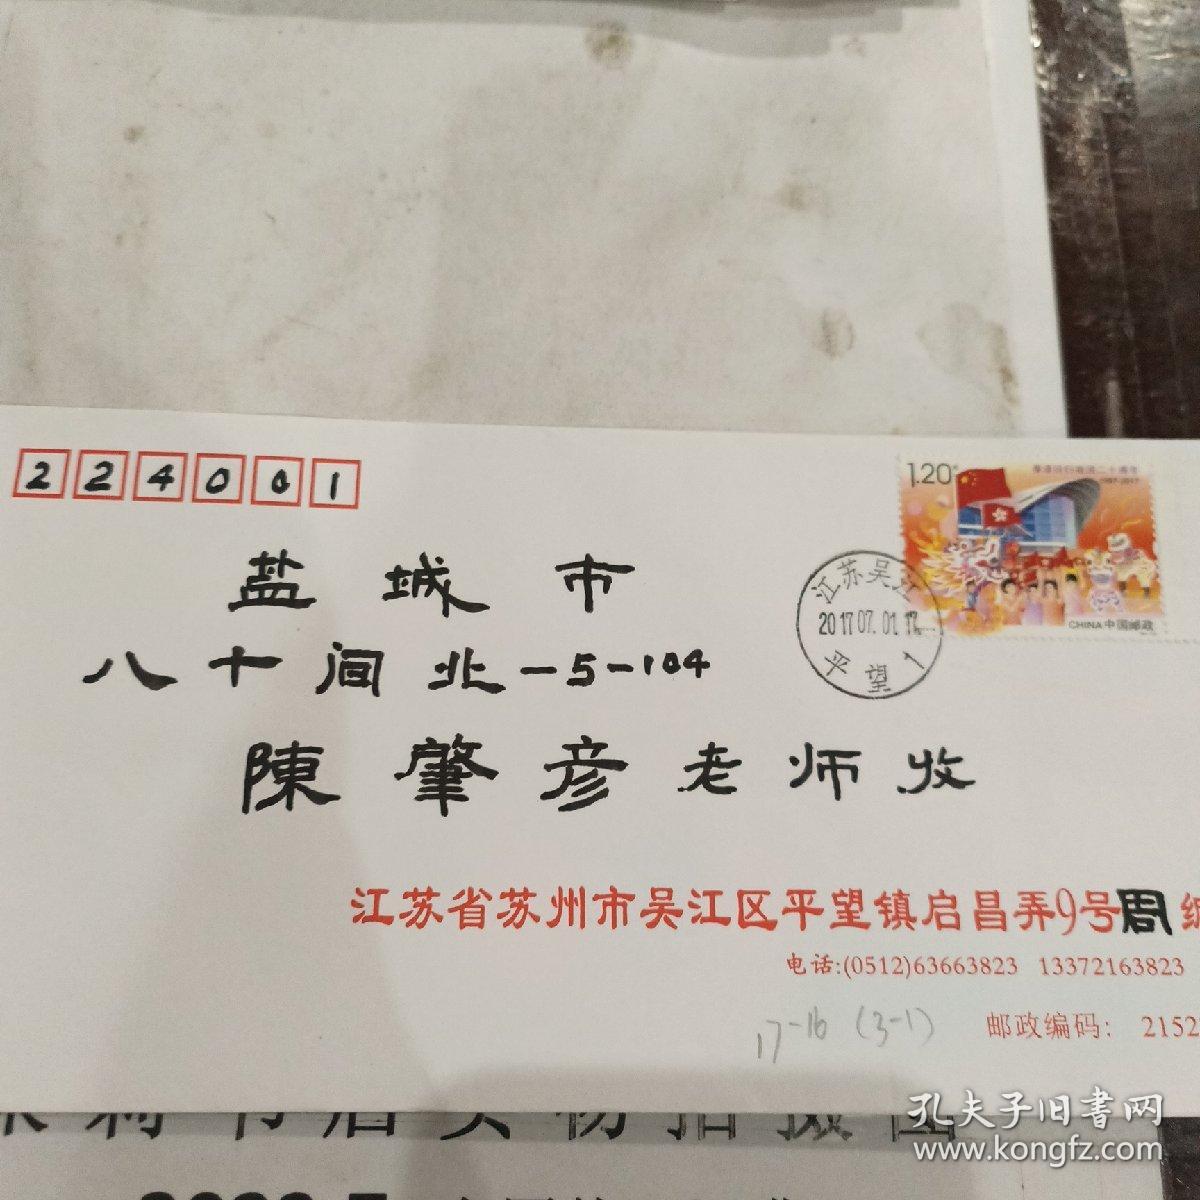 224001
1.20元
香港回归祖国二十周年
1997-2017
CHINA 中国邮政
江苏吴江
2017.07.01.17
平望1
盐城市
八十间北-5-104
陳肇彦老师收
江苏省苏州市吴江区平望镇启昌弄9号周
电话:(0512)63663823 13372163823
17-16 (3-1)
邮政编码: 2152
孔夫子旧书网
www.kongfz.com